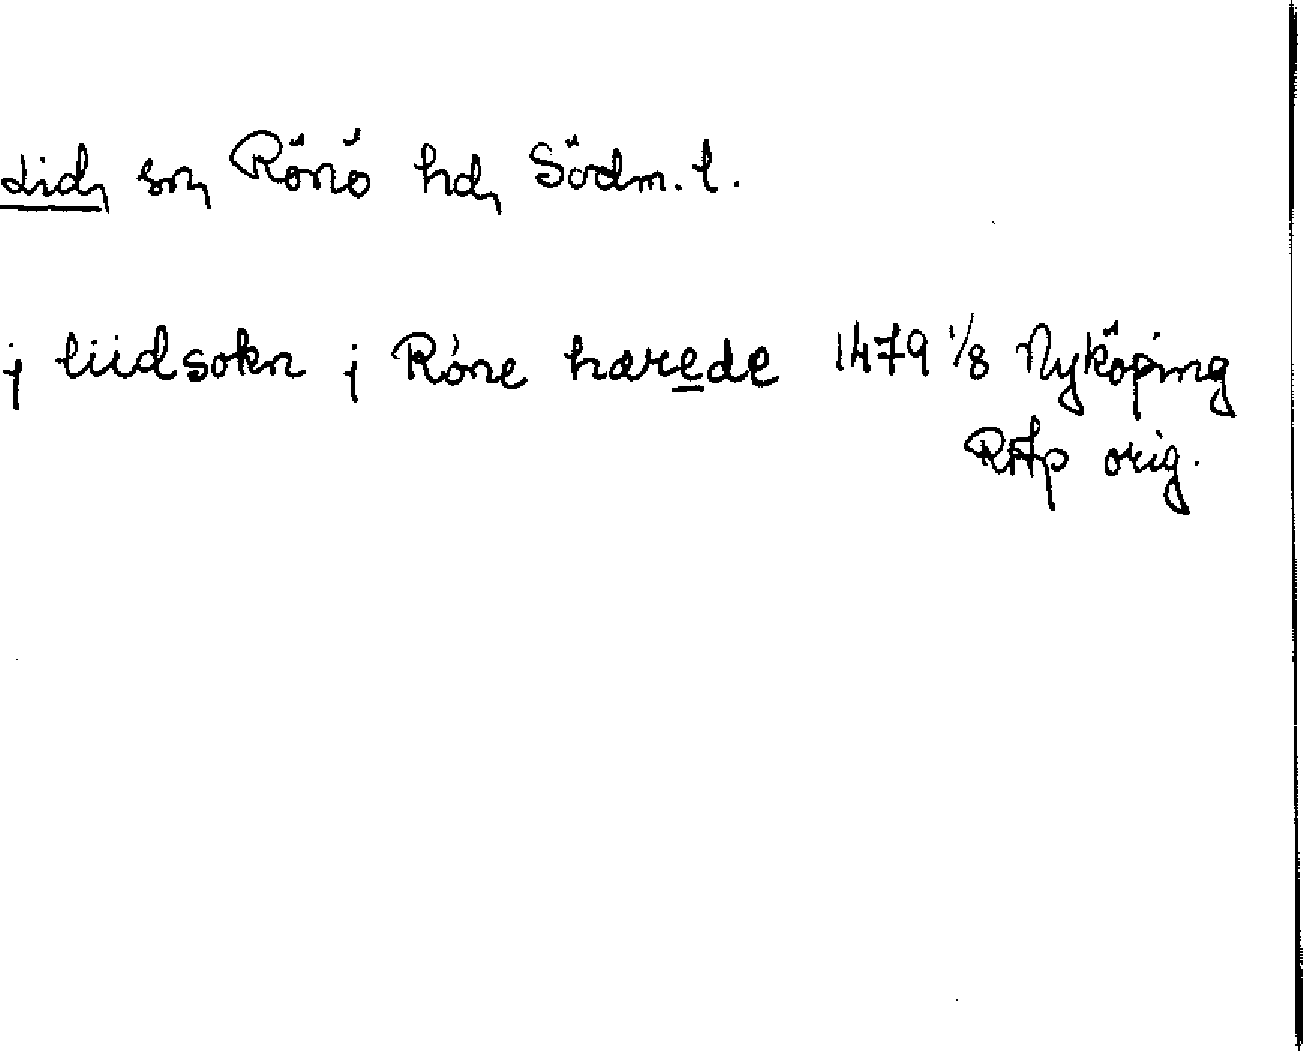 Lid, sn, Rönö hd, Södm. l.
j liidsokn j Röne harede 1479 1/8 Nyköping
RAp orig.